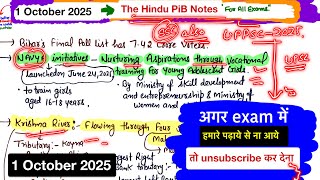 1 October 2025
The Hindu PiB Notes
For All Exams
UPPSC-2025
Bihar's Final Poll list has 7.42 Crore Voters.
NAVYA initiatives - Nurturing Aspirations through Vocational
Launched on June 24, 2025
training for Young Adolescent Girls.
UPSC
to train girls
aged 16-18 years
By Ministry of skill development
and entrepreneurship & Ministry of
women and
Krishna River:- Flowing through Four
Tributary:- Koyna
Right
tributary:
अगर exam में
हमारे पढ़ाये से ना आये
तो unsubscribe कर देना
1 October 2025